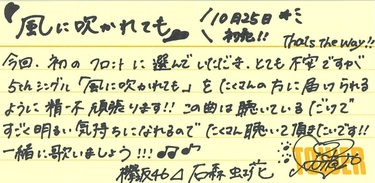 "風に吹かれても"
10月25日
発売!!
That's the way!!
今回、初のフロントに選んでいただき、とても不安ですが
5thシングル「風に吹かれても」をたくさんの方に届けられる
ように精一杯頑張ります!! この曲は聴いているだけで
すごく明るい気持ちになれるのでたくさん聴いて頂きたいです!!
一緒に歌いましょう!!!♫♪
欅坂46 石森虹花
TOWER